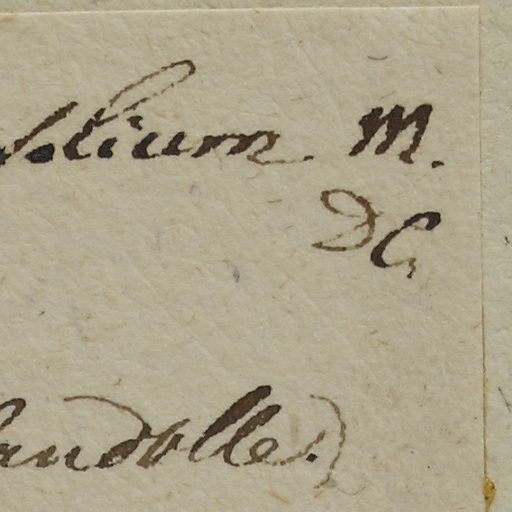 folium M.
DC.
andolle.)